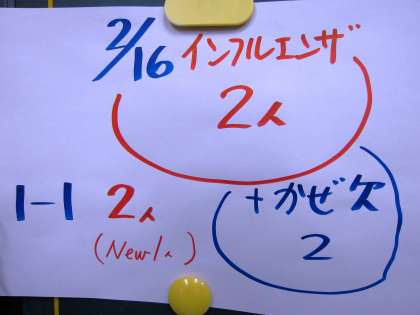 2/16 インフルエンザ
2人
1-1 2人
(New1人)
+かぜ欠
2